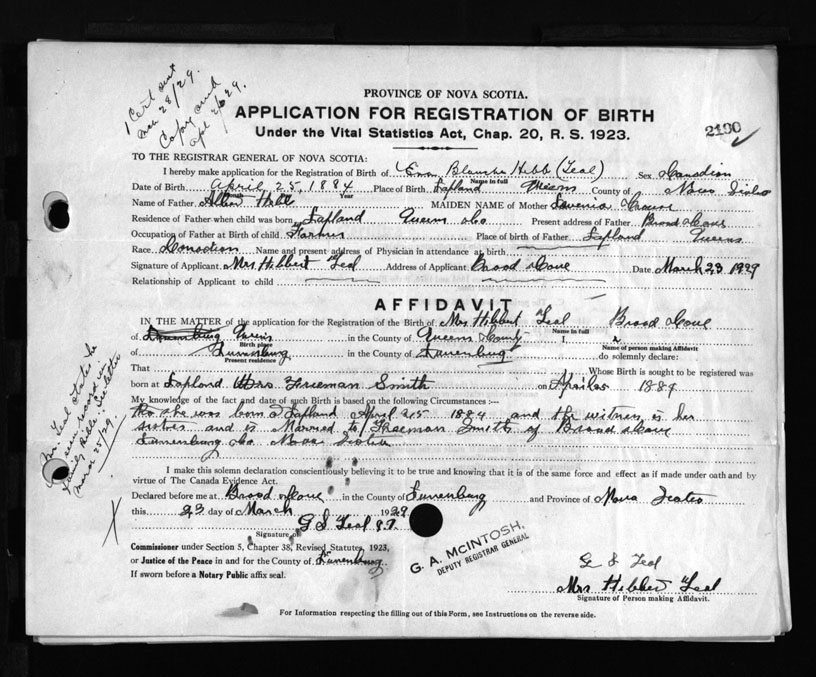 1 Cert out
mar 28/29.
Copy and
apl 2/29.
PROVINCE OF NOVA SCOTIA.
APPLICATION FOR REGISTRATION OF BIRTH
Under the Vital Statistics Act, Chap. 20, R. S. 1923.
2130
TO THE REGISTRAR GENERAL OF NOVA SCOTIA:
I hereby make application for the Registration of Birth of Blanche Hebb (Teal) Sex Canadian
Name in full
Date of Birth April 25, 1884 Place of Birth Lapland Queens County of
Year
Name of Father Hebb MAIDEN NAME of Mother
Residence of Father when child was born Lapland Queens Co Present address of Father Broad Cove
Occupation of Father at Birth of child Farmer Place of birth of Father Lapland Queens
Race Canadian Name and present address of Physician in attendance at birth
Signature of Applicant Mrs Hibbert Teal Address of Applicant Broad Cove Date March 23 1929
Relationship of Applicant to child
AFFIDAVIT
IN THE MATTER of the application for the Registration of the Birth of Mrs Hibbert Teal Broad Cove
Name in full I, Name of person making Affidavit
of Lunenburg in the County of Queens County
Birth place
of Lunenburg in the County of Lunenburg do solemnly declare:
Present residence
That Whose Birth is sought to be registered was
born at Lapland Mrs Freeman Smith on 1884
My knowledge of the fact and date of such Birth is based on the following Circumstances :—
she was born Lapland April 25 1884 and the witness is her
sister and is Married to Freeman Smith of Broad Cove
Lunenburg Co Nova Scotia
I make this solemn declaration conscientiously believing it to be true and knowing that it is of the same force and effect as if made under oath and by
virtue of The Canada Evidence Act.
Declared before me at Broad Cove in the County of Lunenburg and Province of Nova Scotia
this 23 day of March 1929
G S Teal
Signature of
Commissioner under Section 5, Chapter 38, Revised Statutes, 1923,
or Justice of the Peace in and for the County of Lunenburg
If sworn before a Notary Public affix seal.
G. A. McINTOSH,
DEPUTY REGISTRAR GENERAL
G S Teal
Mrs Hibbert Teal
Signature of Person making Affidavit.
For Information respecting the filling out of this Form, see Instructions on the reverse side.
Mrs. Teal states he
seen record in
family Bible. See letter
march 25/29.